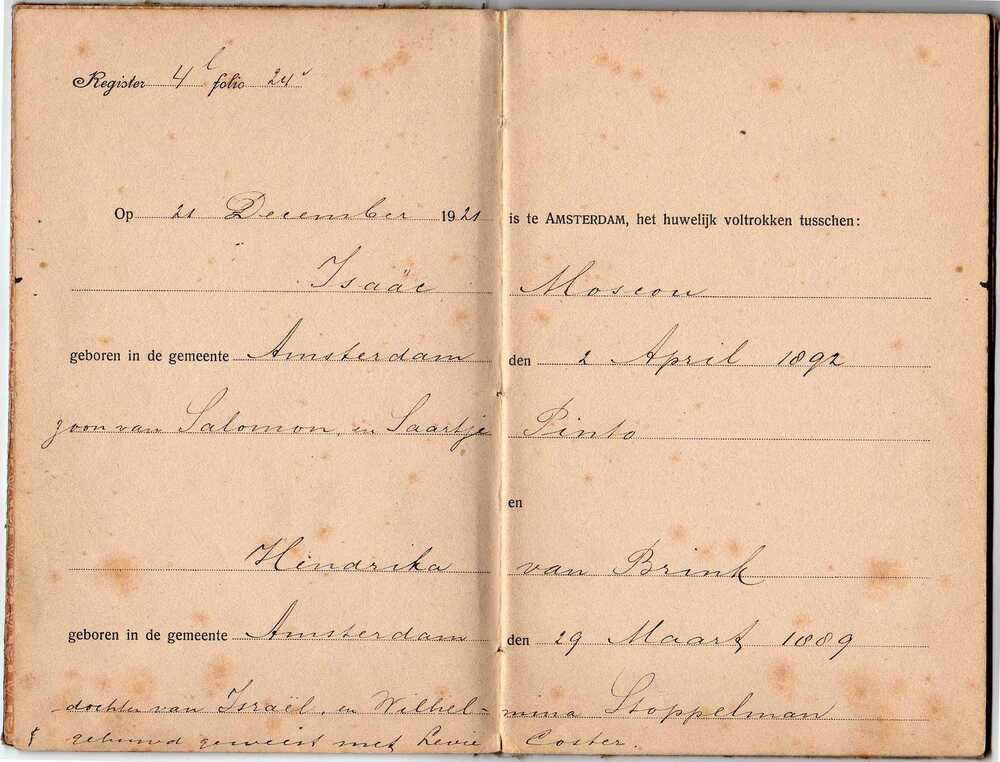 Register 4 folio 24
Op 21 December 1921 is te AMSTERDAM, het huwelijk voltrokken tusschen:
Isaäc Moscou
geboren in de gemeente Amsterdam den 2 April 1892
zoon van Salomon, en Saartje Pinto
en
Hendrika van Brink
geboren in de gemeente Amsterdam den 29 Maart 1889
dochter van Israël, en Wilhel-mina Stoppelman
gehuwd geweest met Levie Coster.